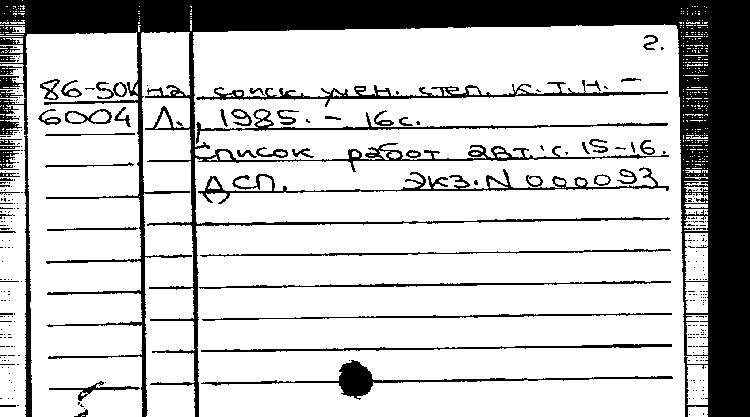 2.
86-50К на соиск. учен. степ. к.т.н. -
6004 Л., 1985. - 16 с.
Список работ авт.: с. 15-16.
ДСП. Экз. N 000093